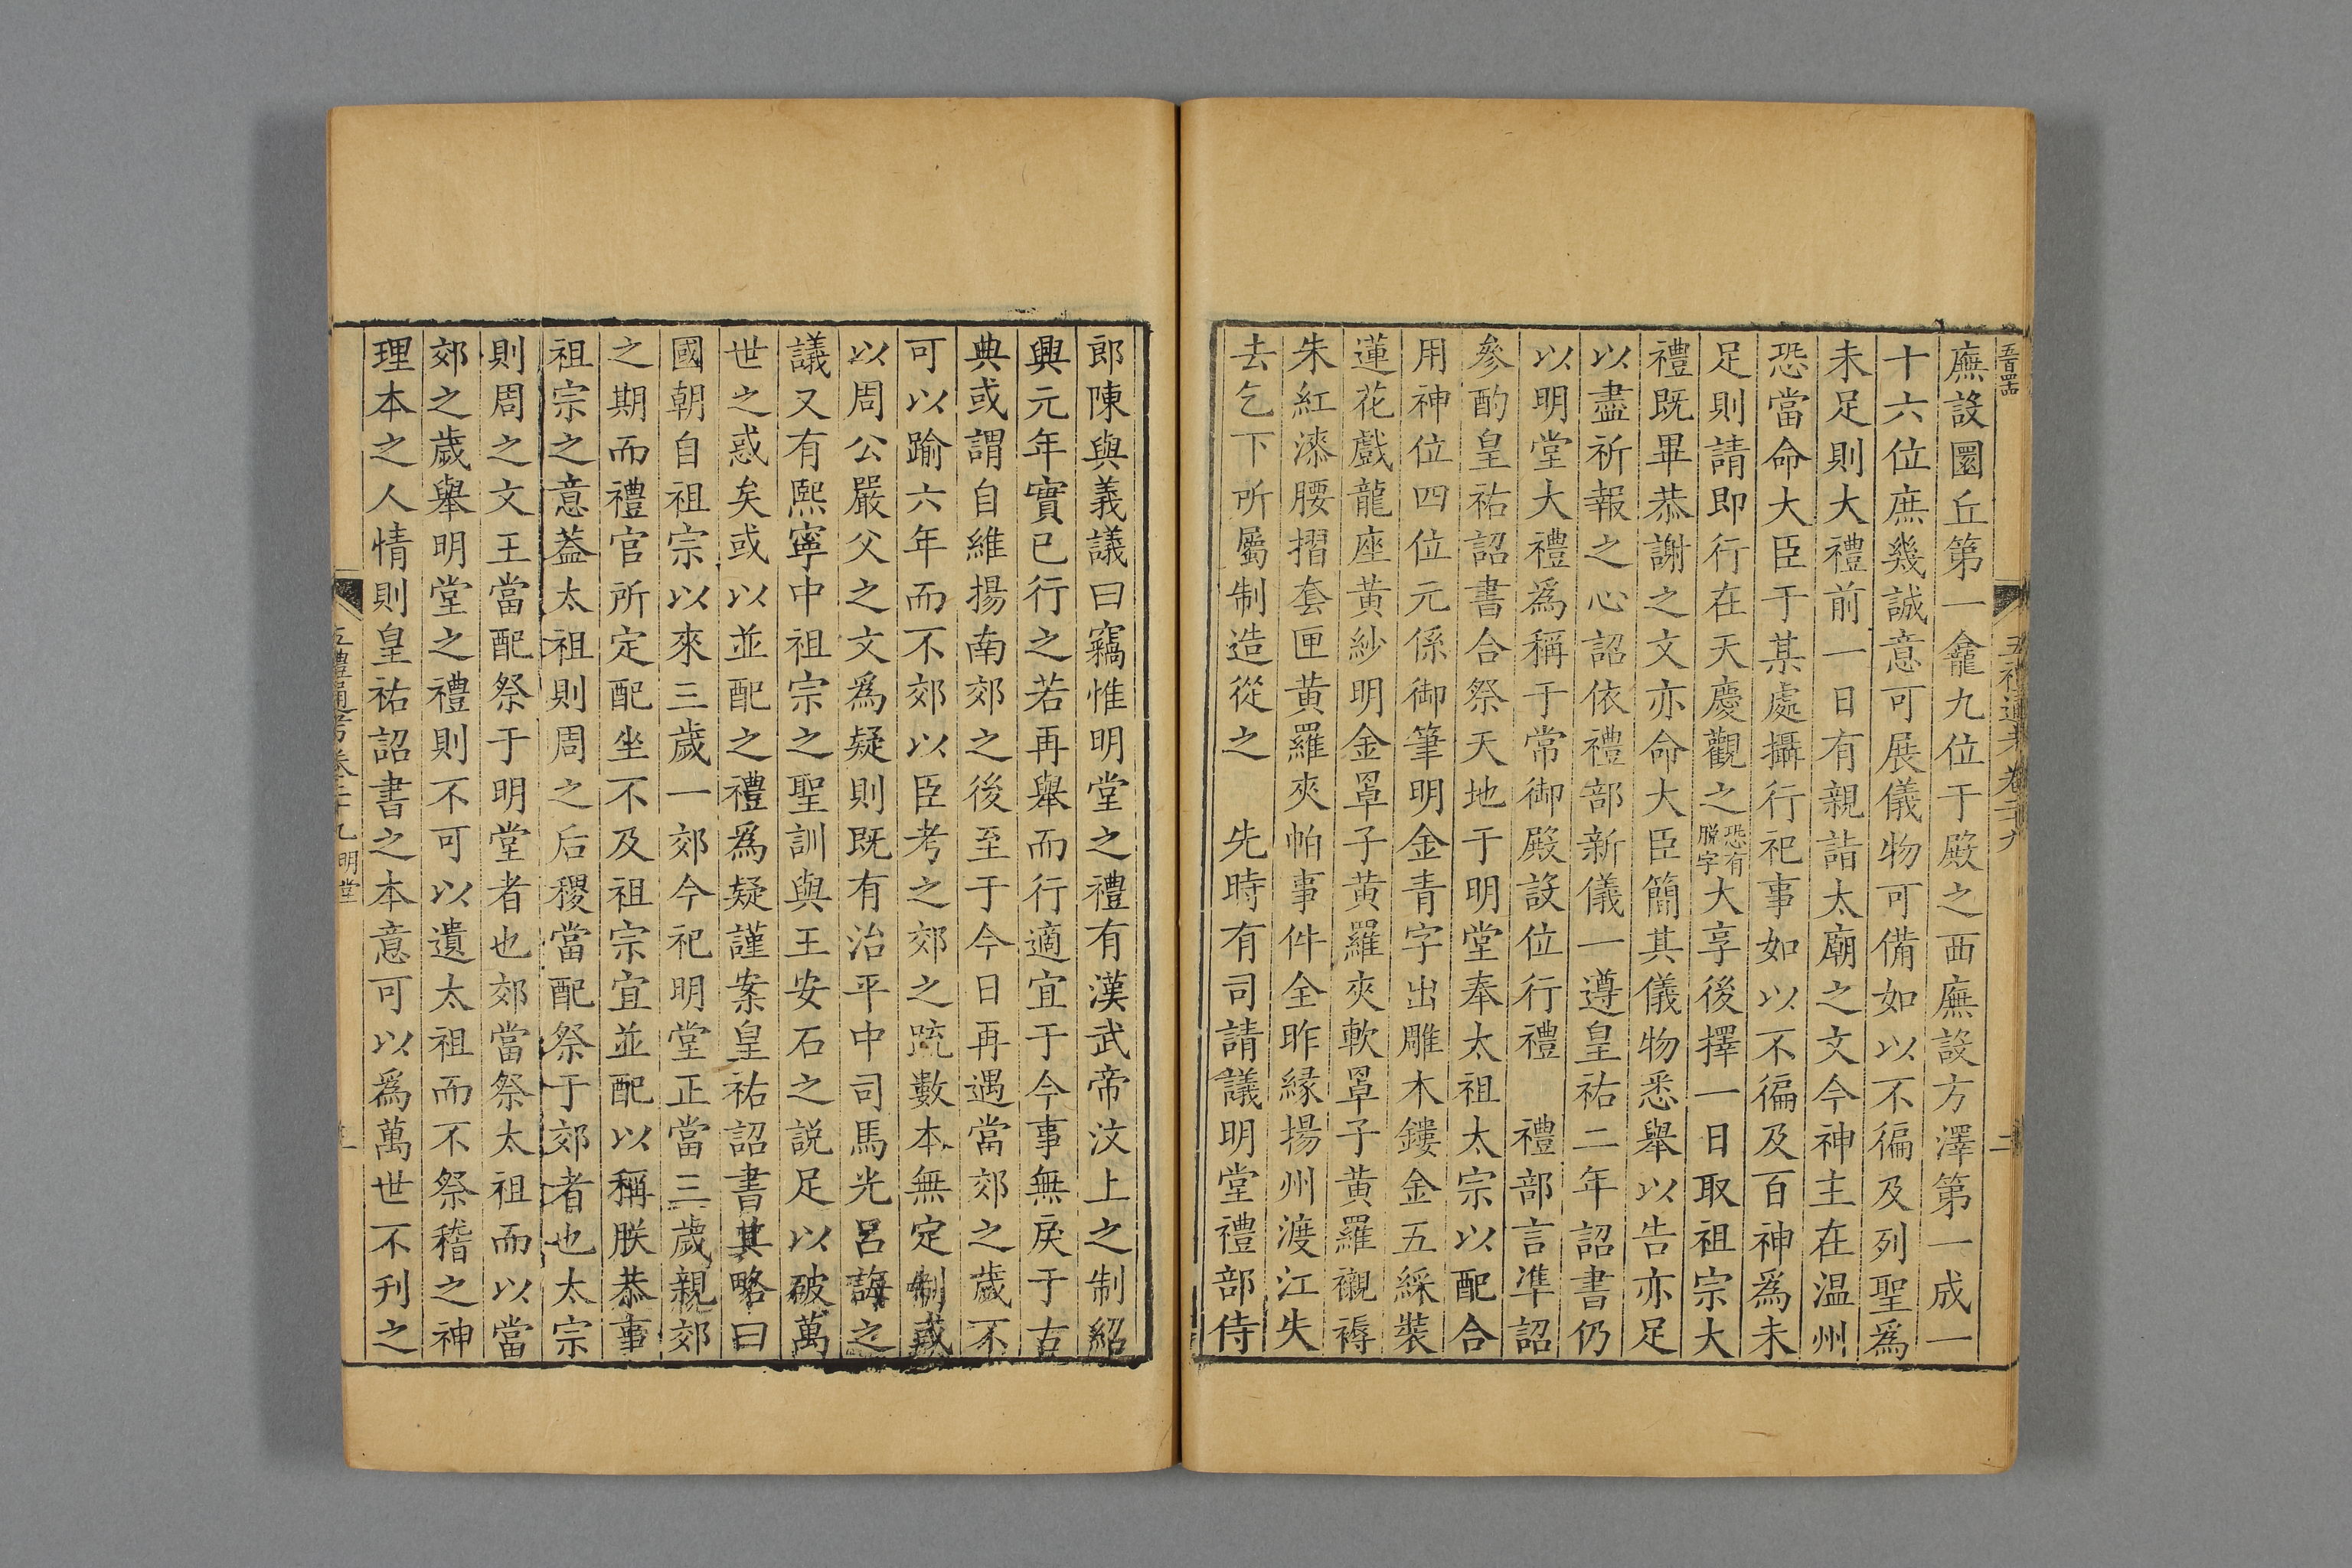 廡設圜丘第一龕九位于殿之西廡設方澤第一成一
十六位庶幾誠意可展儀物可備如以不徧及列聖爲
未足則大禮前一日有親詣太廟之文今神主在温州
恐當命大臣于某處攝行祀事如以不徧及百神爲未
足則請即行在天慶觀之恐有脱字大享後擇一日取祖宗大
禮既畢恭謝之文亦命大臣簡其儀物悉舉以告亦足
以盡祈報之心詔依禮部新儀一遵皇祐二年詔書仍
以明堂大禮爲稱于常御殿設位行禮　禮部言準詔
參酌皇祐詔書合祭天地于明堂奉太祖太宗以配合
用神位四位元係御筆明金青字出雕木鏤金五綵裝
蓮花戲龍座黃紗明金罩子黃羅夾軟罩子黃羅襯褥
朱紅漆腰摺套匣黃羅夾帕事件全昨緣揚州渡江失
去乞下所屬制造從之　先時有司請議明堂禮部侍
五禮通考卷二十九
二
郎陳與義議曰竊惟明堂之禮有漢武帝汶上之制紹
興元年實已行之若再舉而行適宜于今事無戾于古
典或謂自維揚南郊之後至于今日再遇當郊之歲不
可以踰六年而不郊以臣考之郊之疏數本無定制或
以周公嚴父之文爲疑則既有治平中司馬光呂誨之
議又有熙寧中祖宗之聖訓與王安石之説足以破萬
世之惑矣或以並配之禮爲疑謹案皇祐詔書其略曰
國朝自祖宗以來三歲一郊今祀明堂正當三歲親郊
之期而禮官所定配坐不及祖宗宜並配以稱朕恭事
祖宗之意葢太祖則周之后稷當配祭于郊者也太宗
則周之文王當配祭于明堂者也郊當祭太祖而以當
郊之歲舉明堂之禮則不可以遺太祖而不祭稽之神
理本之人情則皇祐詔書之本意可以爲萬世不刊之
五禮通考卷二十九 明堂